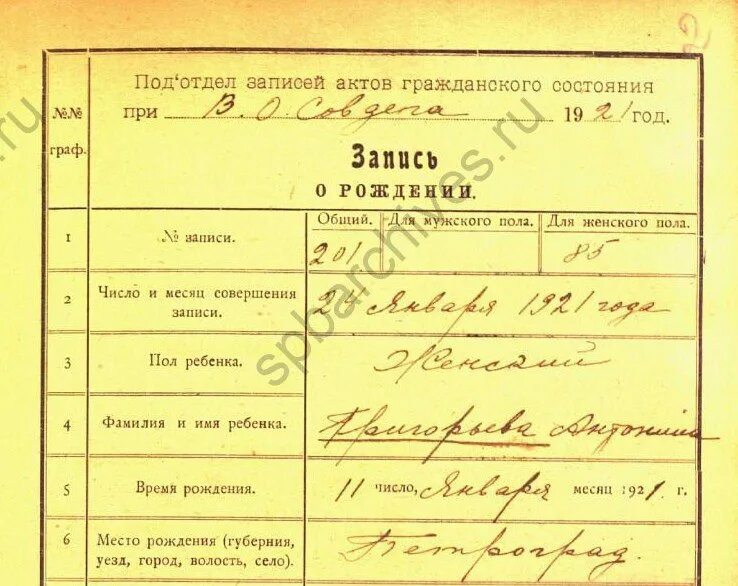 2
Под'отдел записей актов гражданского состояния
при В. О. Совдепа 1921 год.
№№ граф.
Запись
О РОЖДЕНИИ.
1 № записи. Общий. Для мужского пола. Для женского пола.
201 85
2 Число и месяц совершения записи. 24 Января 1921 года
3 Пол ребенка. Женский
4 Фамилия и имя ребенка. Григорьева Антонина
5 Время рождения. 11 число, Января месяц 1921 г.
6 Место рождения (губерния, уезд, город, волость, село). Петроград.
spbarchives.ru